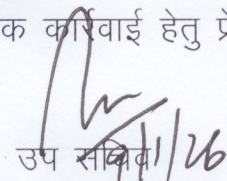 क कार्रवाई हेतु प्रे
उप सचिव
/1/26